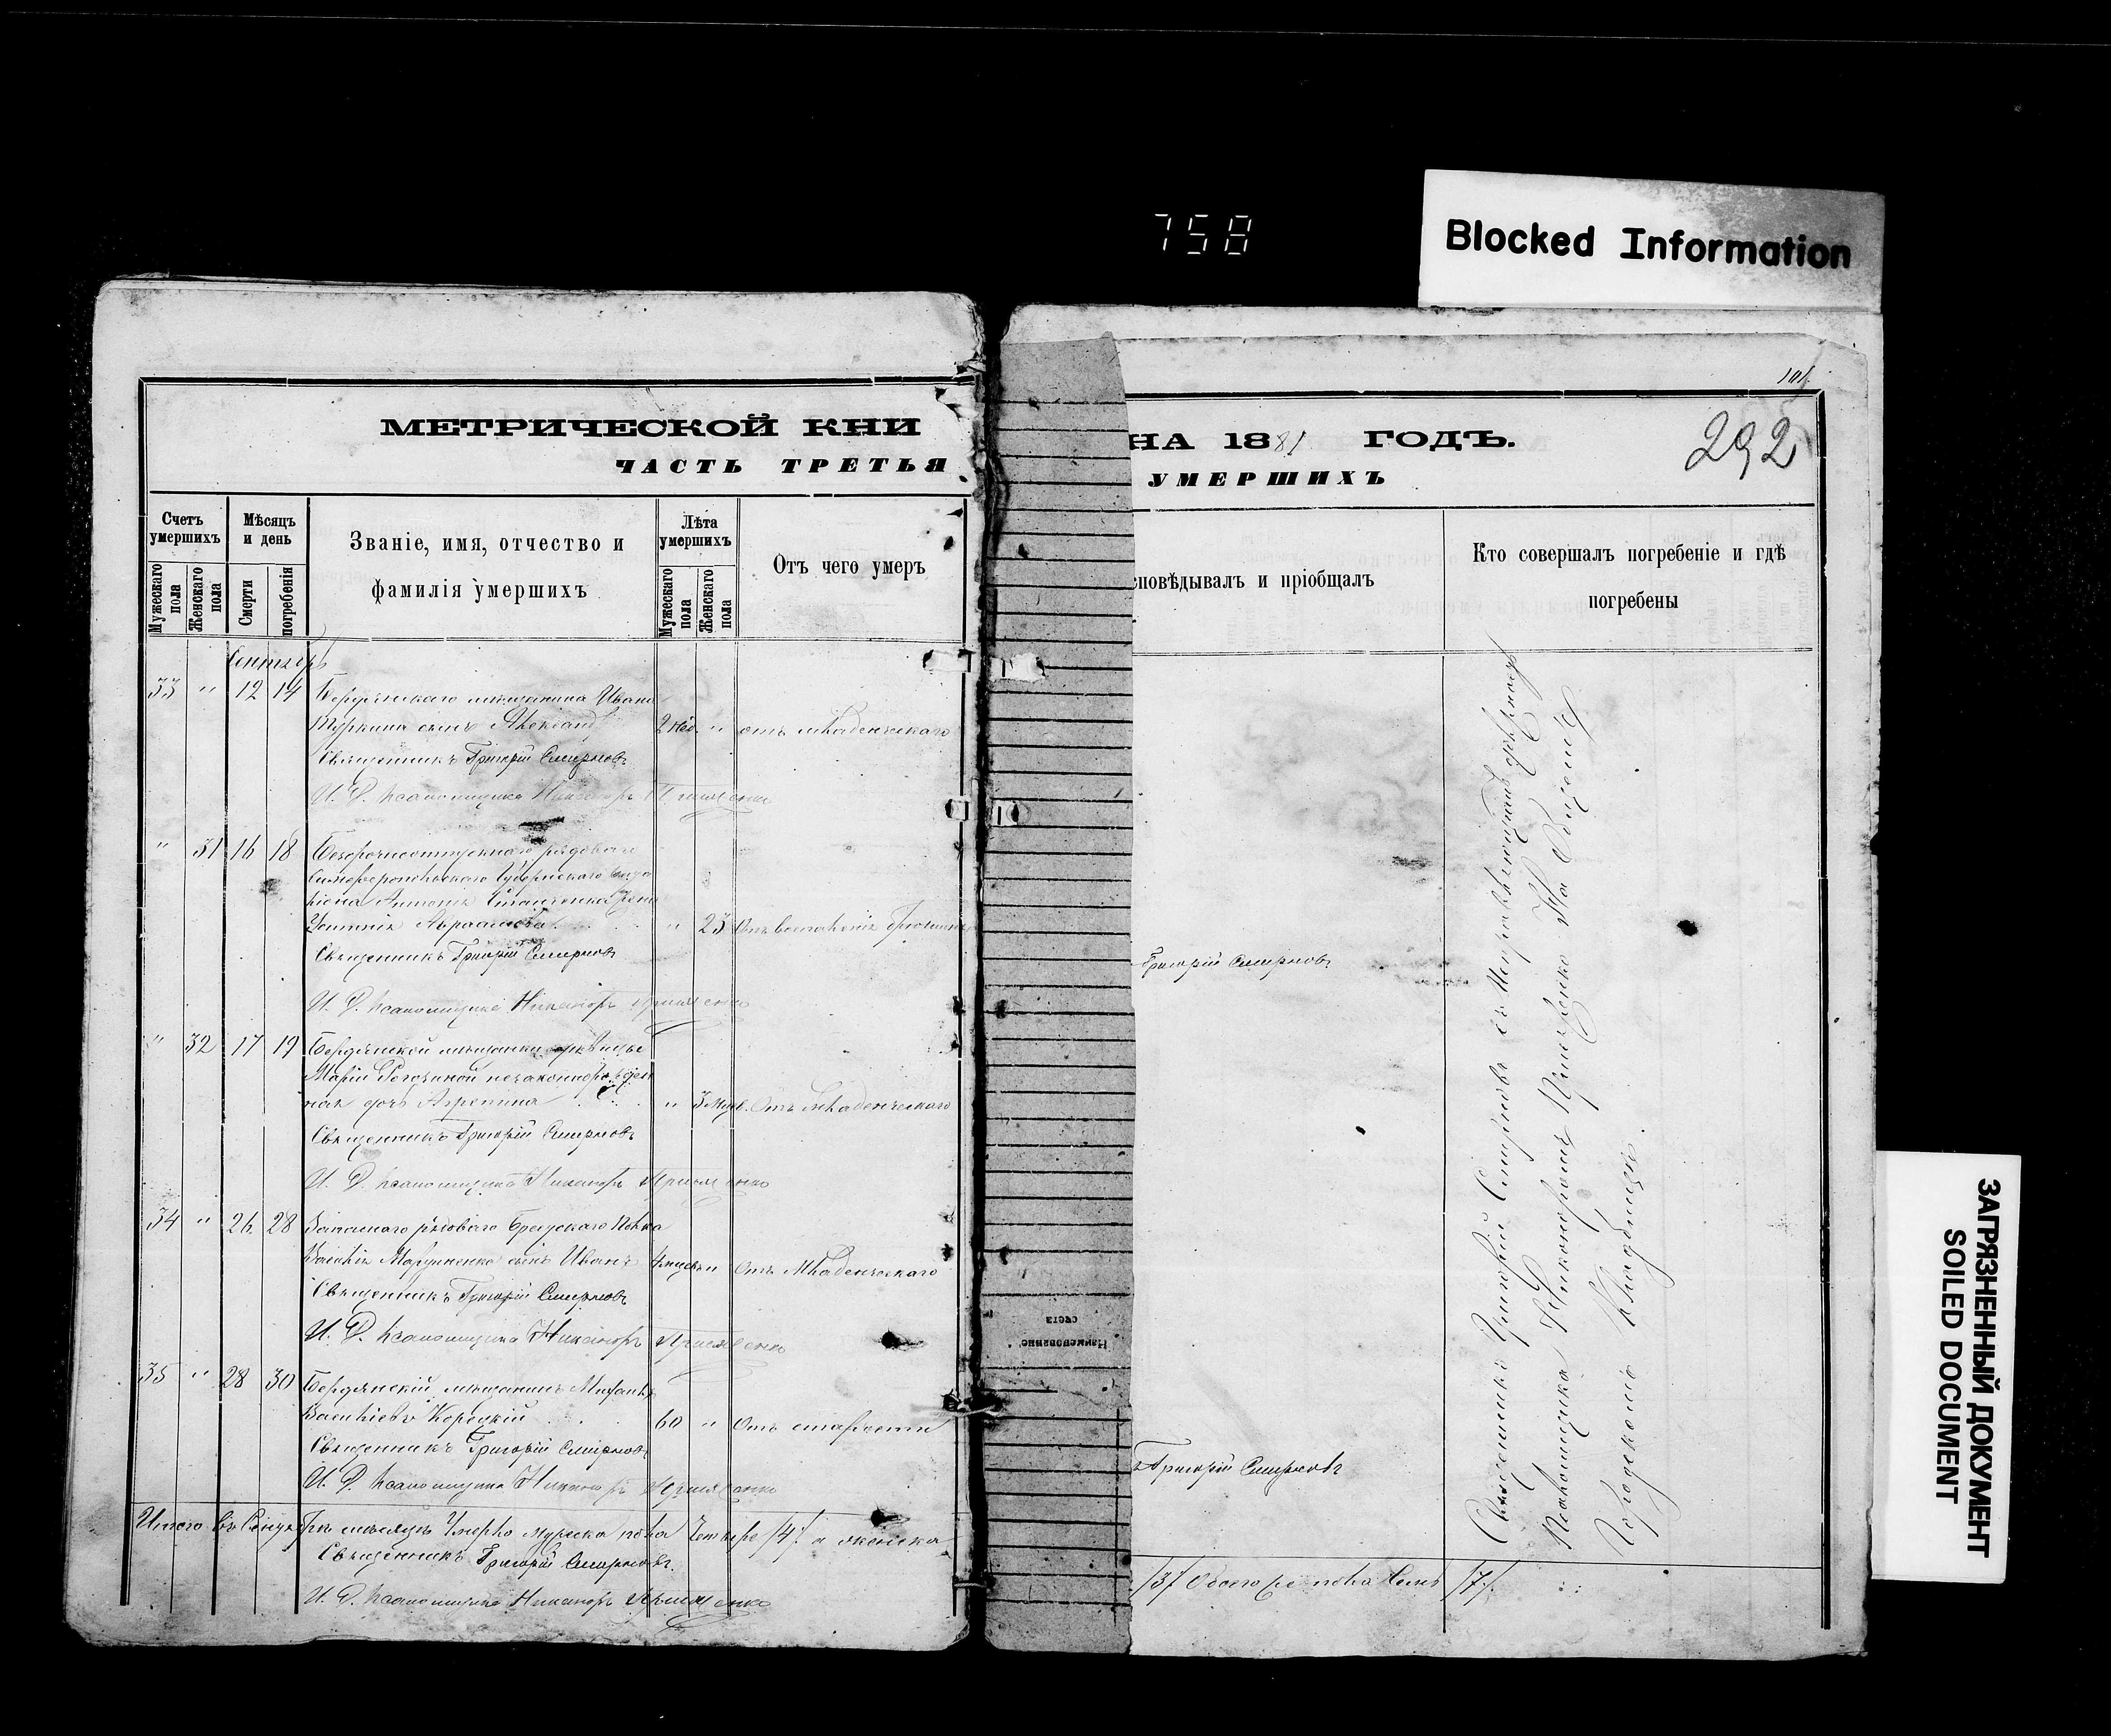 758
Blocked Information
МЕТРИЧЕСКОЙ КНИ
ЧАСТЬ ТРЕТЬЯ
Счетъ умершихъ
Мужескаго пола
Женскаго пола
Мѣсяцъ и день
Смерти
погребенія
Званіе, имя, отчество и
фамилія умершихъ
Лѣта умершихъ
Мужескаго пола
Женскаго пола
Отъ чего умеръ
Сентябрь
33 " 12 14 Бердянскаго мѣщанина Ивана
сынъ Александръ 2 нед. " отъ младенческаго
Священникъ Григорій Смирновъ
И. Д. псаломщика Никаноръ
" 31 16 18 Безсрочноотпускнаго рядоваго
Симферопольскаго Губернскаго
Антонія жена
Авраамова " 23 Отъ воспаленія брюшины
Священникъ Григорій Смирновъ
И. Д. псаломщика Никаноръ
" 32 17 19 Бердянской мѣщанки дѣвицы
Маріи незаконнорожден
ная дочь Агрепина " 3 мѣс. Отъ младенческаго
Священникъ Григорій Смирновъ
И. Д. псаломщика Никаноръ
34 " 26 28 Запаснаго рядоваго полка
Василія сынъ Иванъ 4 мѣсяц. " Отъ младенческаго
Священникъ Григорій Смирновъ
И. Д. псаломщика Никаноръ
35 " 28 30 Бердянскій мѣщанинъ Михаилъ
Васильевъ Корецкій 60 " Отъ старости
Священникъ Григорій Смирновъ
И. Д. псаломщика Никаноръ
Итого въ Сентябрѣ мѣсяцѣ умерло мужска пола четыре /4/ и женска
Священникъ Григорій Смирновъ.
И. Д. псаломщика Никаноръ
101.
НА 1881 ГОДЪ.
292
УМЕРШИХЪ
сповѣдывалъ и пріобщалъ
Кто совершалъ погребеніе и гдѣ
погребены
Григорій Смирновъ
Григорій Смирновъ
Священникъ Григорій Смирновъ съ Исправляющимъ должность
Псаломщика Никаноромъ На Общемъ
Городскомъ Кладбищѣ.
/3/ Обоего пола семь /7/.
Наименованіе
счета
ЗАГРЯЗНЕННЫЙ ДОКУМЕНТ
SOILED DOCUMENT